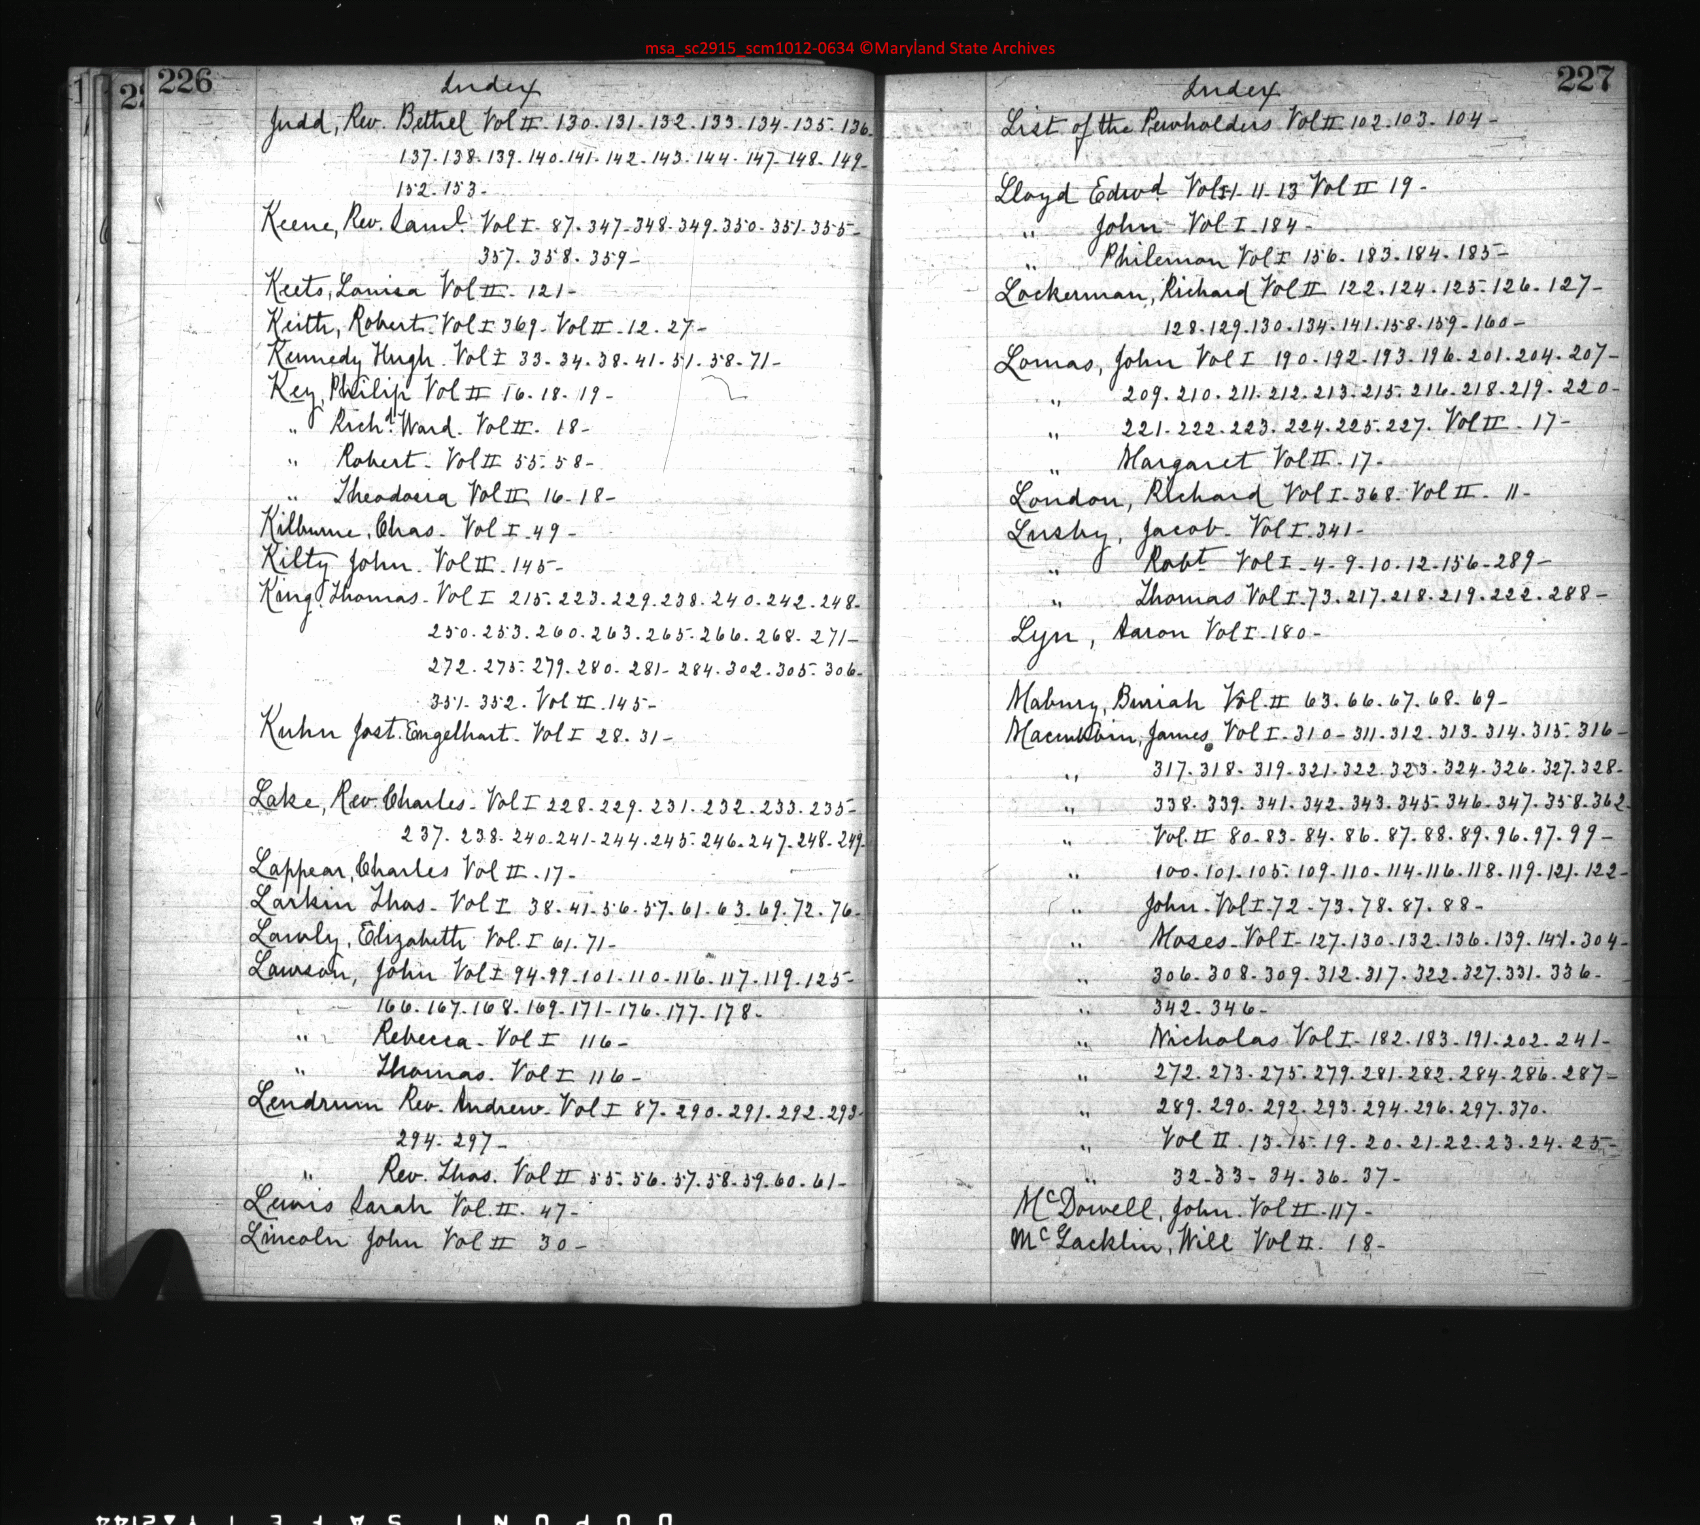 msa_sc2915_scm1012-0634 ©Maryland State Archives
226
Index
Judd, Rev. Bethel Vol II. 130. 131. 132. 133. 134. 135. 136.
137. 138. 139. 140. 141. 142. 143. 144. 147. 148. 149.
152. 153.
Keene, Rev. Saml. Vol I. 87. 347. 348. 349. 350. 351. 355.
357. 358. 359.
Keets, Louisa Vol II. 121.
Keith, Robert. Vol I 369. Vol II. 12. 27.
Kennedy Hugh. Vol I 33. 34. 38. 41. 51. 58. 71.
Key, Philip Vol II 16. 18. 19.
" Richd. Ward. Vol II. 18.
" Robert. Vol II 55. 58.
" Theodosia Vol II 16. 18.
Kilburne, Chas. Vol I. 49.
Kilty John. Vol II. 145.
King, Thomas. Vol I 215. 223. 229. 238. 240. 242. 248.
250. 253. 260. 263. 265. 266. 268. 271.
272. 275. 279. 280. 281. 284. 302. 305. 306.
351. 352. Vol II. 145.
Kuhn Jost. Engelhart. Vol I 28. 31.
Lake, Rev. Charles. Vol I 228. 229. 231. 232. 233. 235.
237. 238. 240. 241. 244. 245. 246. 247. 248. 249.
Lappear, Charles Vol II. 17.
Larkin Thos. Vol I 38. 41. 56. 57. 61. 63. 69. 72. 76.
Lawly, Elizabeth Vol. I 61. 71.
Lawson, John Vol I 94. 99. 101. 110. 116. 117. 119. 125.
166. 167. 168. 169. 171. 176. 177. 178.
" Rebecca. Vol I 116.
" Thomas. Vol I 116.
Lendrum Rev. Andrew. Vol I 87. 290. 291. 292. 293.
294. 297.
" Rev. Thos. Vol II 55. 56. 57. 58. 59. 60. 61.
Lewis Sarah Vol. II. 47.
Lincoln John Vol II 30.
227
Index
List of the Pewholders Vol II 102. 103. 104.
Lloyd Edwd. Vol I 1. 11. 13 Vol II 19.
" John Vol I. 184.
" Philemon Vol I 156. 183. 184. 185.
Lockerman, Richard Vol II 122. 124. 125. 126. 127.
128. 129. 130. 134. 141. 158. 159. 160.
Lomas, John Vol I 190. 192. 193. 196. 201. 204. 207.
" 209. 210. 211. 212. 213. 215. 216. 218. 219. 220.
" 221. 222. 223. 224. 225. 227. Vol II. 17.
" Margaret Vol II. 17.
London, Richard Vol I. 368. Vol II. 11.
Lusby, Jacob. Vol I. 341.
" Robt Vol I. 4. 9. 10. 12. 156. 289.
" Thomas Vol I. 73. 217. 218. 219. 222. 288.
Lyn, Aaron Vol I. 180.
Mabury, Buriah Vol. II 63. 66. 67. 68. 69.
James Vol I. 310. 311. 312. 313. 314. 315. 316.
" 317. 318. 319. 321. 322. 323. 324. 326. 327. 328.
" 338. 339. 341. 342. 343. 345. 346. 347. 358. 362.
" Vol. II 80. 83. 84. 86. 87. 88. 89. 96. 97. 99.
" 100. 101. 105. 109. 110. 114. 116. 118. 119. 121. 122.
" John. Vol I. 72. 73. 78. 87. 88.
" Moses. Vol I. 127. 130. 132. 136. 139. 141. 304.
" 306. 308. 309. 312. 317. 322. 327. 331. 336.
" 342. 346.
" Nicholas Vol I. 182. 183. 191. 202. 241.
" 272. 273. 275. 279. 281. 282. 284. 286. 287.
" 289. 290. 292. 293. 294. 296. 297. 370.
" Vol II. 13. 15. 19. 20. 21. 22. 23. 24. 25.
" 32. 33. 34. 36. 37.
McDowell, John. Vol II. 117.
McLacklin, Will Vol II. 18.